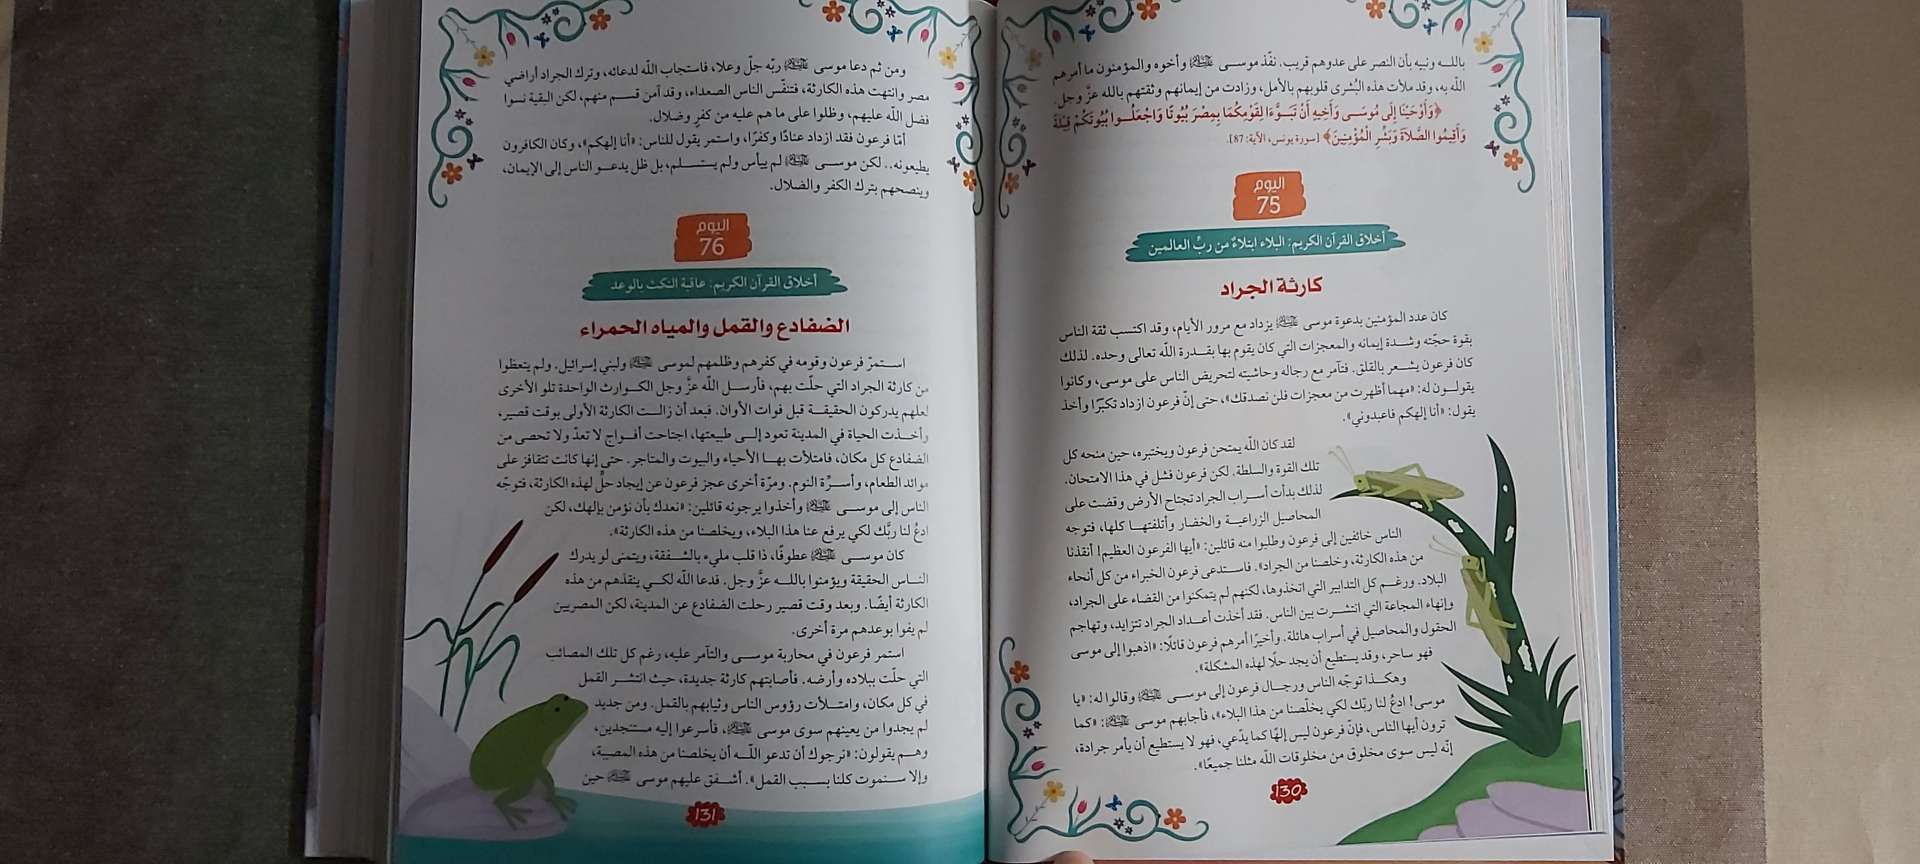 بالله ونبيه بأن النصر على عدوهم قريب. نفّذ موسى ﷺ وأخوه والمؤمنون ما أمرهم
الله به، وقد ملأت هذه البُشرى قلوبهم بالأمل، وزادت من إيمانهم وثقتهم بالله عزَّ وجل.
﴿وَأَوْحَيْنَا إِلَى مُوسَى وَأَخِيهِ أَنْ تَبَوَّءَا لِقَوْمِكُمَا بِمِصْرَ بُيُوتًا وَاجْعَلُوا بُيُوتَكُمْ قِبْلَةً
وَأَقِيمُوا الصَّلَاةَ وَبَشِّرِ الْمُؤْمِنِينَ﴾ [سورة يونس، الآية: 87].
اليوم
75
أخلاق القرآن الكريم: البلاء ابتلاءٌ من ربِّ العالمين
كارثة الجراد
كان عدد المؤمنين بدعوة موسى ﷺ يزداد مع مرور الأيام، وقد اكتسب ثقة الناس
بقوة حجّته وشدة إيمانه والمعجزات التي كان يقوم بها بقدرة الله تعالى وحده. لذلك
كان فرعون يشعر بالقلق. فتآمر مع رجاله وحاشيته لتحريض الناس على موسى، وكانوا
يقولون له: «مهما أظهرت من معجزات فلن نصدقك»، حتى إنّ فرعون ازداد تكبّرًا وأخذ
يقول: «أنا إلهكم فاعبدوني».
لقد كان الله يمتحن فرعون ويختبره، حين منحه كل
تلك القوة والسلطة. لكن فرعون فشل في هذا الامتحان.
لذلك بدأت أسراب الجراد تجتاح الأرض وقضت على
المحاصيل الزراعية والخضار وأتلفتها كلها، فتوجه
الناس خائفين إلى فرعون وطلبوا منه قائلين: «أيها الفرعون العظيم! أنقذنا
من هذه الكارثة، وخلصنا من الجراد». فاستدعى فرعون الخبراء من كل أنحاء
البلاد. ورغم كل التدابير التي اتخذوها، لكنهم لم يتمكنوا من القضاء على الجراد،
وإنهاء المجاعة التي انتشرت بين الناس. فقد أخذت أعداد الجراد تتزايد، وتهاجم
الحقول والمحاصيل في أسراب هائلة. وأخيرًا أمرهم فرعون قائلًا: «اذهبوا إلى موسى
فهو ساحر، وقد يستطيع أن يجد حلًا لهذه المشكلة».
وهكذا توجّه الناس ورجال فرعون إلى موسى ﷺ وقالوا له: «يا
موسى! ادعُ لنا ربّك لكي يخلّصنا من هذا البلاء»، فأجابهم موسى ﷺ: «كما
ترون أيها الناس، فإنّ فرعون ليس إلهًا كما يدّعي، فهو لا يستطيع أن يأمر جرادة،
إنّه ليس سوى مخلوق من مخلوقات الله مثلنا جميعًا».
130
ومن ثم دعا موسى ﷺ ربّه جلّ وعلا، فاستجاب الله لدعائه، وترك الجراد أراضي
مصر وانتهت هذه الكارثة، فتنفّس الناس الصعداء، وقد آمن قسم منهم، لكن البقية نسوا
فضل الله عليهم، وظلوا على ما هم عليه من كفرٍ وضلال.
أمّا فرعون فقد ازداد عنادًا وكفرًا، واستمر يقول للناس: «أنا إلهكم»، وكان الكافرون
يطيعونه.. لكن موسى ﷺ لم ييأس ولم يستسلم، بل ظل يدعو الناس إلى الإيمان،
وينصحهم بترك الكفر والضلال.
اليوم
76
أخلاق القرآن الكريم: عاقبة النكث بالوعد
الضفادع والقمل والمياه الحمراء
استمرّ فرعون وقومه في كفرهم وظلمهم لموسى ﷺ ولبني إسرائيل. ولم يتعظوا
من كارثة الجراد التي حلّت بهم، فأرسل الله عزَّ وجل الكوارث الواحدة تلو الأخرى
لعلهم يدركون الحقيقة قبل فوات الأوان. فبعد أن زالت الكارثة الأولى بوقت قصير،
وأخذت الحياة في المدينة تعود إلى طبيعتها، اجتاحت أفواج لا تعدّ ولا تحصى من
الضفادع كل مكان، فامتلأت بها الأحياء والبيوت والمتاجر. حتى إنها كانت تتقافز على
موائد الطعام، وأسرَّة النوم. ومرّة أخرى عجز فرعون عن إيجاد حلٍّ لهذه الكارثة، فتوجّه
الناس إلى موسى ﷺ وأخذوا يرجونه قائلين: «نعدك بأن نؤمن بإلهك، لكن
ادعُ لنا ربَّك لكي يرفع عنا هذا البلاء، ويخلصنا من هذه الكارثة».
كان موسى ﷺ عطوفًا، ذا قلب مليء بالشفقة، ويتمنى لو يدرك
الناس الحقيقة ويؤمنوا بالله عزَّ وجل. فدعا الله لكي ينقذهم من هذه
الكارثة أيضًا. وبعد وقت قصير رحلت الضفادع عن المدينة، لكن المصريين
لم يفوا بوعدهم مرة أخرى.
استمر فرعون في محاربة موسى والتآمر عليه، رغم كل تلك المصائب
التي حلّت ببلاده وأرضه. فأصابتهم كارثة جديدة، حيث انتشر القمل
في كل مكان، وامتلأت رؤوس الناس وثيابهم بالقمل. ومن جديد
لم يجدوا من يعينهم سوى موسى ﷺ، فأسرعوا إليه مستنجدين،
وهم يقولون: «نرجوك أن تدعو الله أن يخلصنا من هذه المصيبة،
وإلا سنموت كلنا بسبب القمل». أشفق عليهم موسى ﷺ حين
131